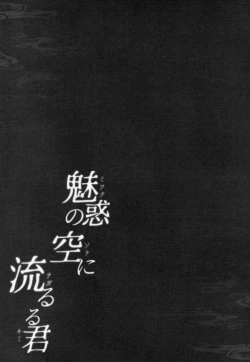 魅惑
の空に
流るる君